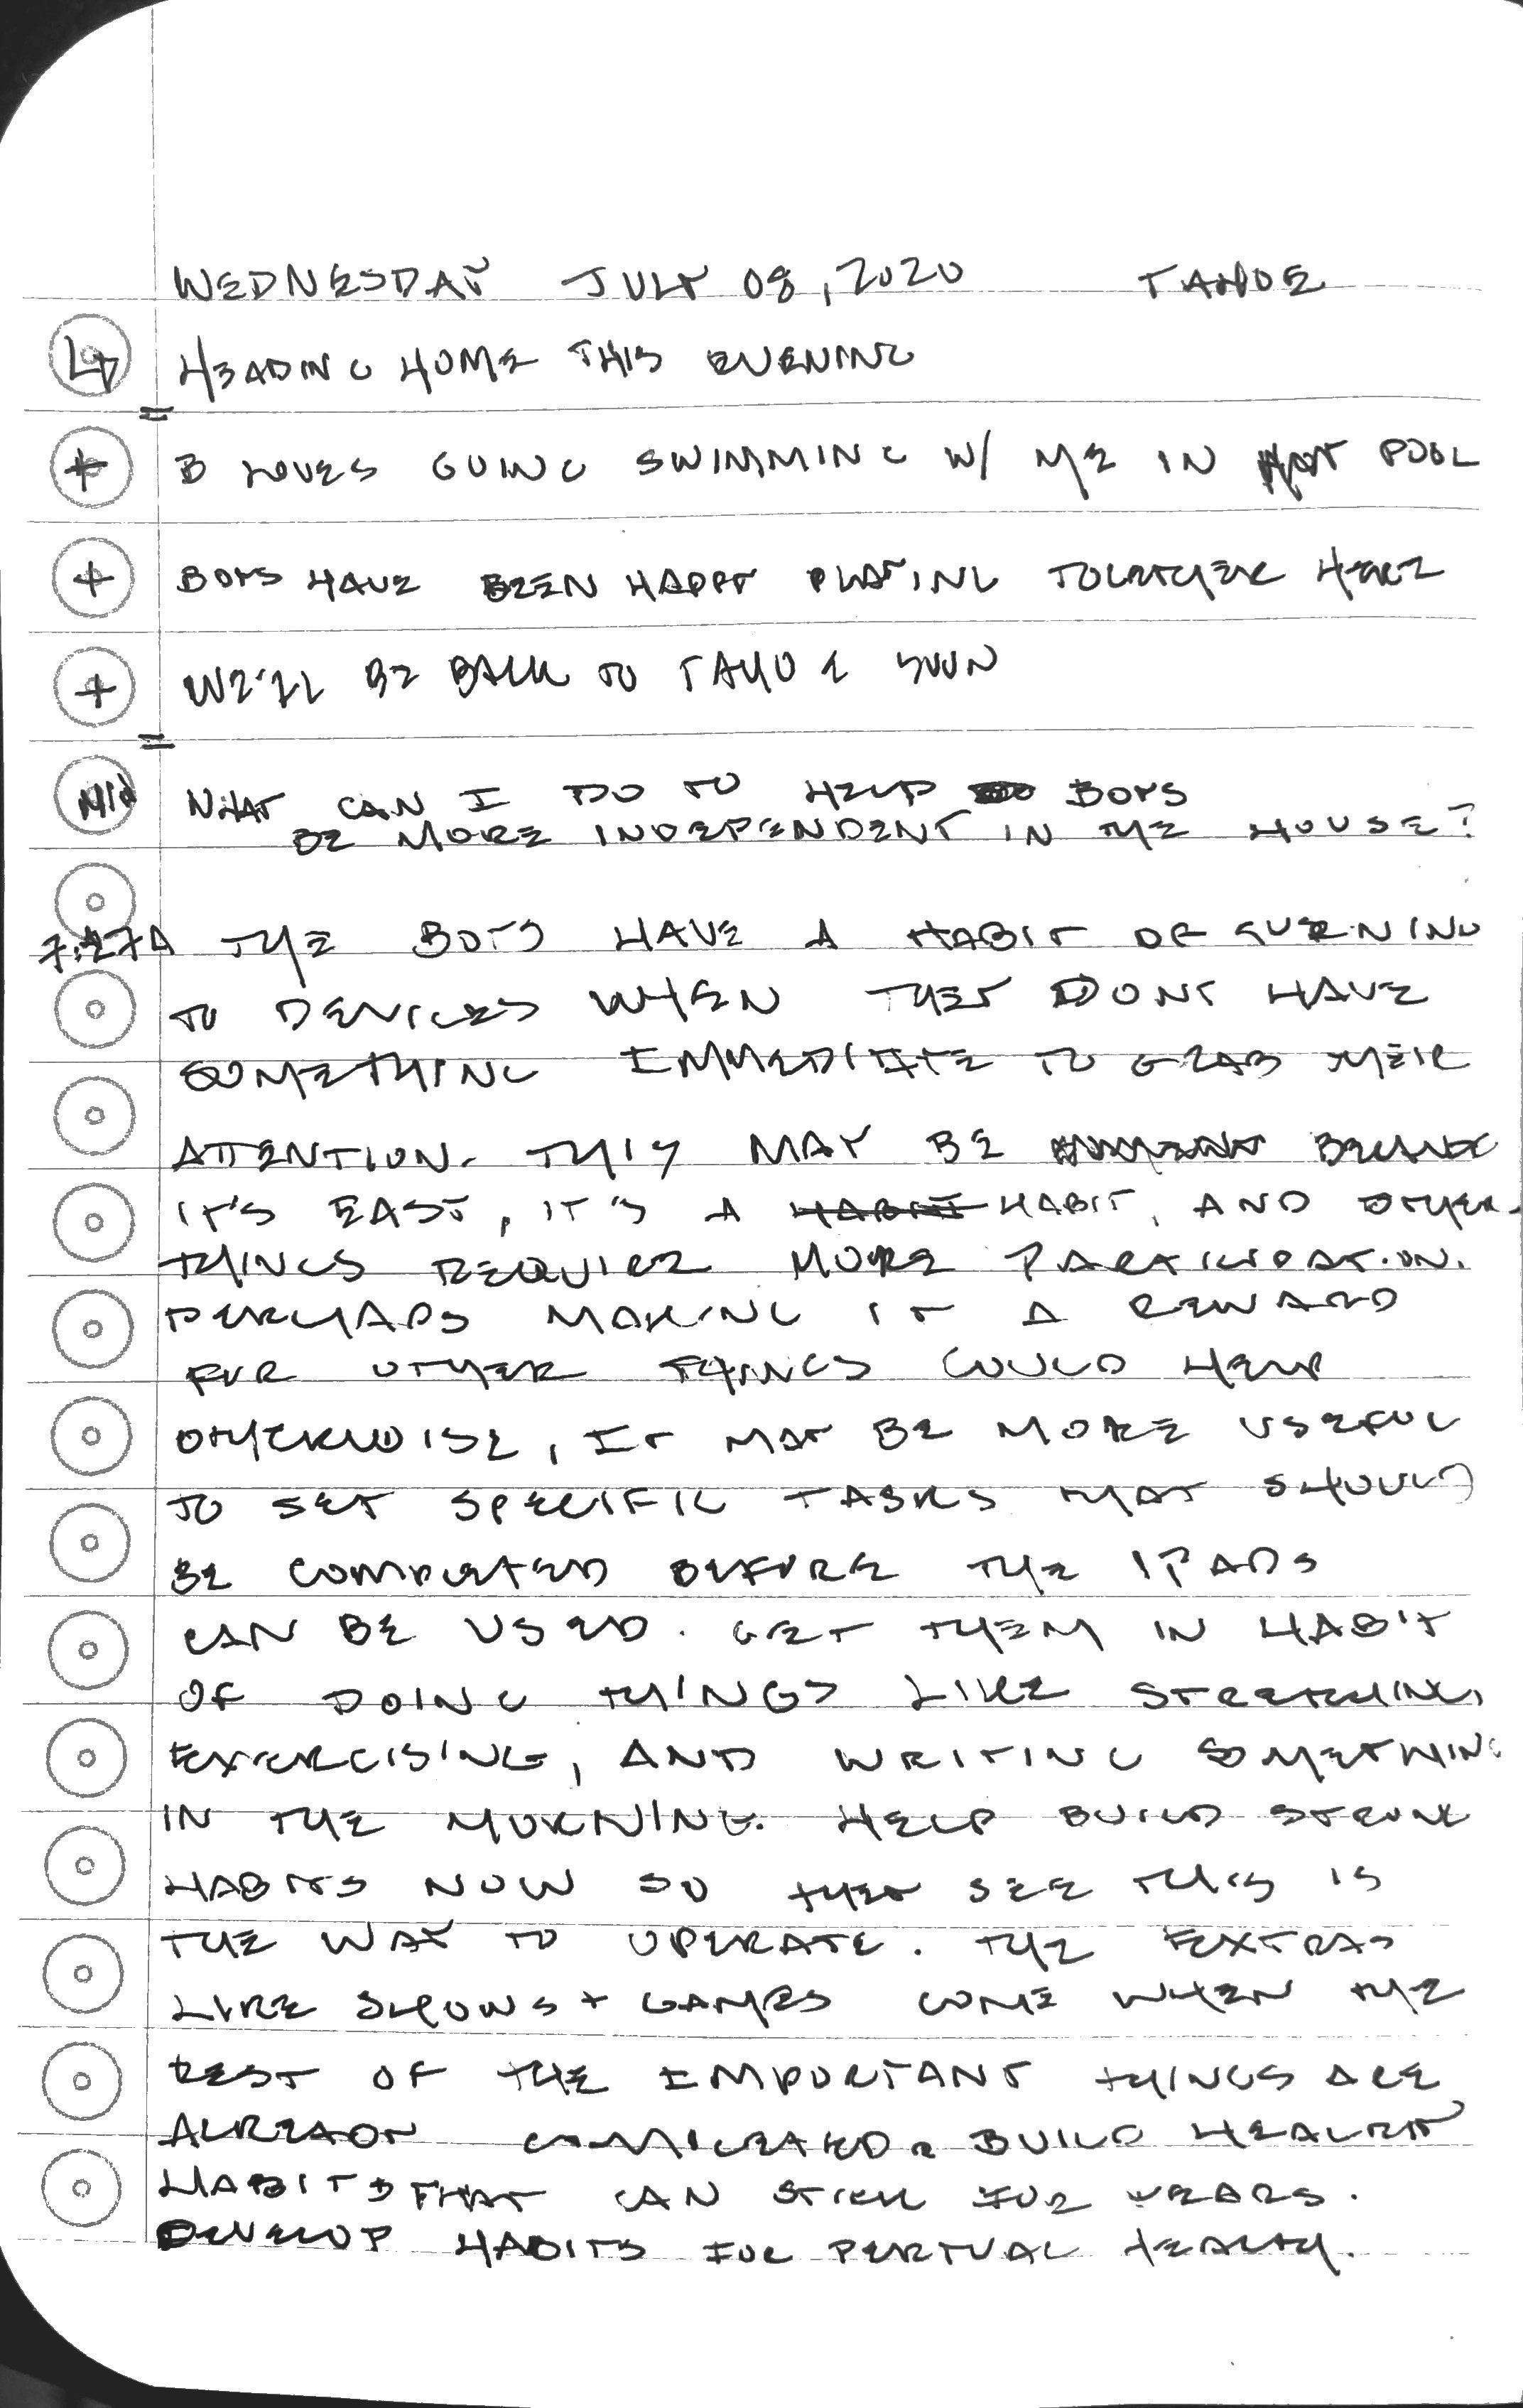 WEDNESDAY JULY 08, 2020 TAHOE
HEADING HOME THIS EVENING
+ B LOVES GOING SWIMMING W/ ME IN HOT POOL
+ BOYS HAVE BEEN HAPPY PLAYING TOGETHER HERE
+ WE'LL BE BACK TO TAHOE SOON
WHAT CAN I DO TO HELP BOYS
BE MORE INDEPENDENT IN THE HOUSE?
7:27A THE BOYS HAVE A HABIT OF TURNING
TO DEVICES WHEN THEY DONT HAVE
SOMETHING IMMEDIATE TO GRAB THEIR
ATTENTION. THIS MAY BE BECAUSE
IT'S EASY, IT'S A HABIT, AND OTHER
THINGS REQUIRE MORE PARTICIPATION.
PERHAPS MAKING IT A REWARD
FOR OTHER THINGS COULD HELP
OTHERWISE, IT MAY BE MORE USEFUL
TO SET SPECIFIC TASKS THAT SHOULD
BE COMPLETED BEFORE THE IPADS
CAN BE USED. GET THEM IN HABIT
OF DOING THINGS LIKE STRETCHING,
EXERCISING, AND WRITING SOMETHING
IN THE MORNING. HELP BUILD STRONG
HABITS NOW SO THEY SEE THIS IS
THE WAY TO OPERATE. THE EXTRAS
LIKE SHOWS + GAMES COME WHEN THE
REST OF THE IMPORTANT THINGS ARE
ALREADY COMPLETED. BUILD HEALTHY
HABITS THAT CAN STICK FOR YEARS.
DEVELOP HABITS FOR PERTUAL HEALTH.